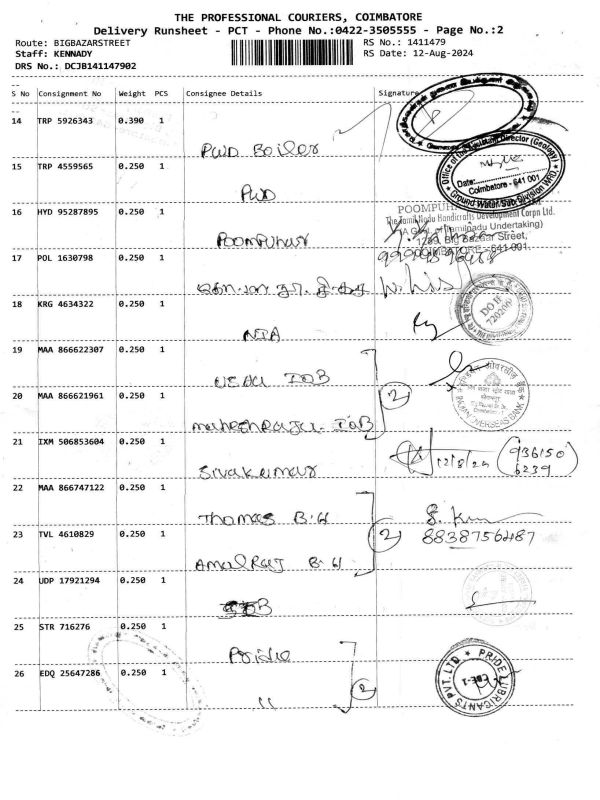 THE PROFESSIONAL COURIERS, COIMBATORE
Delivery Runsheet - PCT - Phone No.:0422-3505555 - Page No.:2
Route: BIGBAZARSTREET RS No.: 1411479
Staff: KENNADY RS Date: 12-Aug-2024
DRS No.: DCJB141147902
S No Consignment No Weight PCS Consignee Details Signature
14 TRP 5926343 0.390 1
PWD Boiler
15 TRP 4559565 0.250 1
Office of the Assistant Director (Geology)
Date:
Coimbatore - 641 001
Ground Water Sub Division WRD.
PWD
16 HYD 95287895 0.250 1
POOMPUHAR
The Tamil Nadu Handicrafts Development Corpn Ltd.
(A Govt. of Tamilnadu Undertaking)
1209, Big Bazaar Street,
COIMBATORE - 641 001.
Poompuhar
17 POL 1630798 0.250 1
18 KRG 4634322 0.250 1
DO II
720200
NIA
19 MAA 866622307 0.250 1
IOB
20 MAA 866621961 0.250 1
2
OVERSEAS BANK
Maheshraju. IOB
21 IXM 506853604 0.250 1
12/8/24
936150
6239
Sivakumar
22 MAA 866747122 0.250 1
Thomas B.H
23 TVL 4610829 0.250 1
2
8838756487
Amalraj B.H
24 UDP 17921294 0.250 1
25 STR 716276 0.250 1
Pride
26 EDQ 25647286 0.250 1
2
PRIDE LUBRICANTS PVT. LTD
CBE-1
"